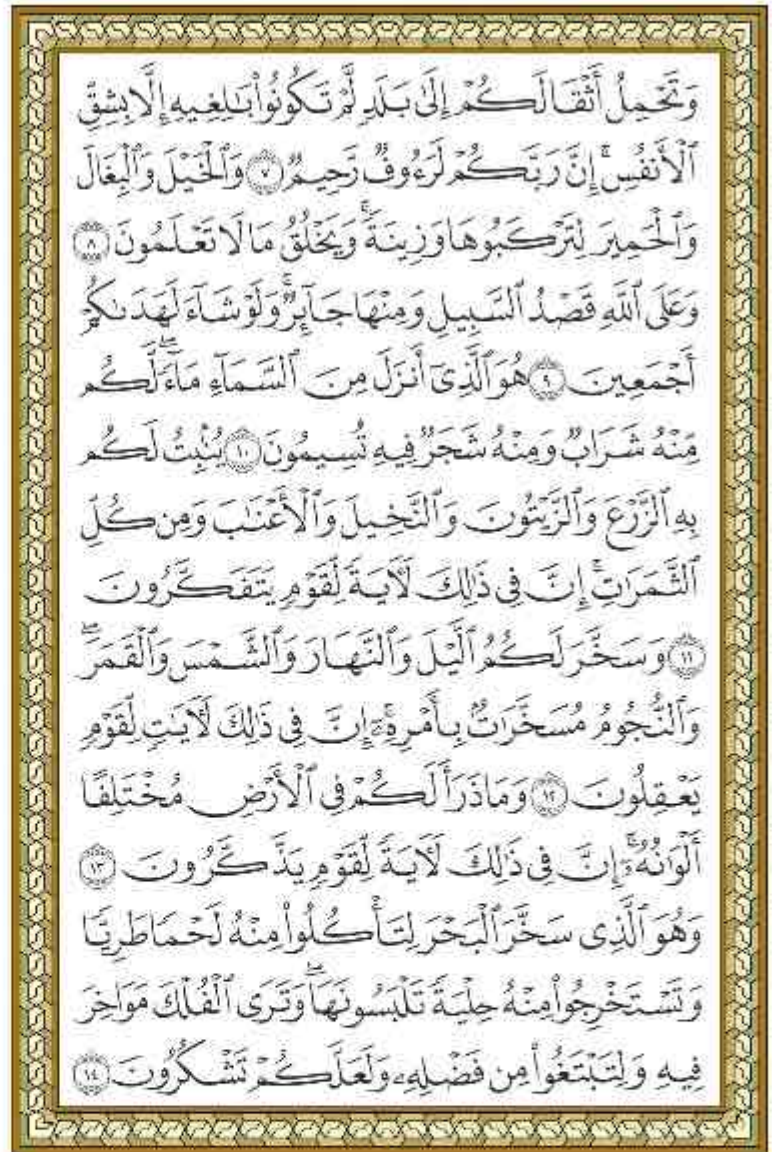 وَتَحْمِلُ أَثْقَالَكُمْ إِلَىٰ بَلَدٍ لَّمْ تَكُونُوا۟ بَٰلِغِيهِ إِلَّا بِشِقِّ
ٱلْأَنفُسِ ۚ إِنَّ رَبَّكُمْ لَرَءُوفٌ رَّحِيمٌ ٧ وَٱلْخَيْلَ وَٱلْبِغَالَ
وَٱلْحَمِيرَ لِتَرْكَبُوهَا وَزِينَةً ۚ وَيَخْلُقُ مَا لَا تَعْلَمُونَ ٨
وَعَلَى ٱللَّهِ قَصْدُ ٱلسَّبِيلِ وَمِنْهَا جَآئِرٌ ۚ وَلَوْ شَآءَ لَهَدَىٰكُمْ
أَجْمَعِينَ ٩ هُوَ ٱلَّذِىٓ أَنزَلَ مِنَ ٱلسَّمَآءِ مَآءً ۖ لَّكُم
مِّنْهُ شَرَابٌ وَمِنْهُ شَجَرٌ فِيهِ تُسِيمُونَ ١٠ يُنۢبِتُ لَكُم
بِهِ ٱلزَّرْعَ وَٱلزَّيْتُونَ وَٱلنَّخِيلَ وَٱلْأَعْنَٰبَ وَمِن كُلِّ
ٱلثَّمَرَٰتِ ۗ إِنَّ فِى ذَٰلِكَ لَـَٔايَةً لِّقَوْمٍ يَتَفَكَّرُونَ
١١ وَسَخَّرَ لَكُمُ ٱلَّيْلَ وَٱلنَّهَارَ وَٱلشَّمْسَ وَٱلْقَمَرَ ۖ
وَٱلنُّجُومُ مُسَخَّرَٰتٌۢ بِأَمْرِهِۦٓ ۗ إِنَّ فِى ذَٰلِكَ لَـَٔايَٰتٍ لِّقَوْمٍ
يَعْقِلُونَ ١٢ وَمَا ذَرَأَ لَكُمْ فِى ٱلْأَرْضِ مُخْتَلِفًا
أَلْوَٰنُهُۥٓ ۗ إِنَّ فِى ذَٰلِكَ لَـَٔايَةً لِّقَوْمٍ يَذَّكَّرُونَ ١٣
وَهُوَ ٱلَّذِى سَخَّرَ ٱلْبَحْرَ لِتَأْكُلُوا۟ مِنْهُ لَحْمًا طَرِيًّا
وَتَسْتَخْرِجُوا۟ مِنْهُ حِلْيَةً تَلْبَسُونَهَا ۖ وَتَرَى ٱلْفُلْكَ مَوَاخِرَ
فِيهِ وَلِتَبْتَغُوا۟ مِن فَضْلِهِۦ وَلَعَلَّكُمْ تَشْكُرُونَ ١٤